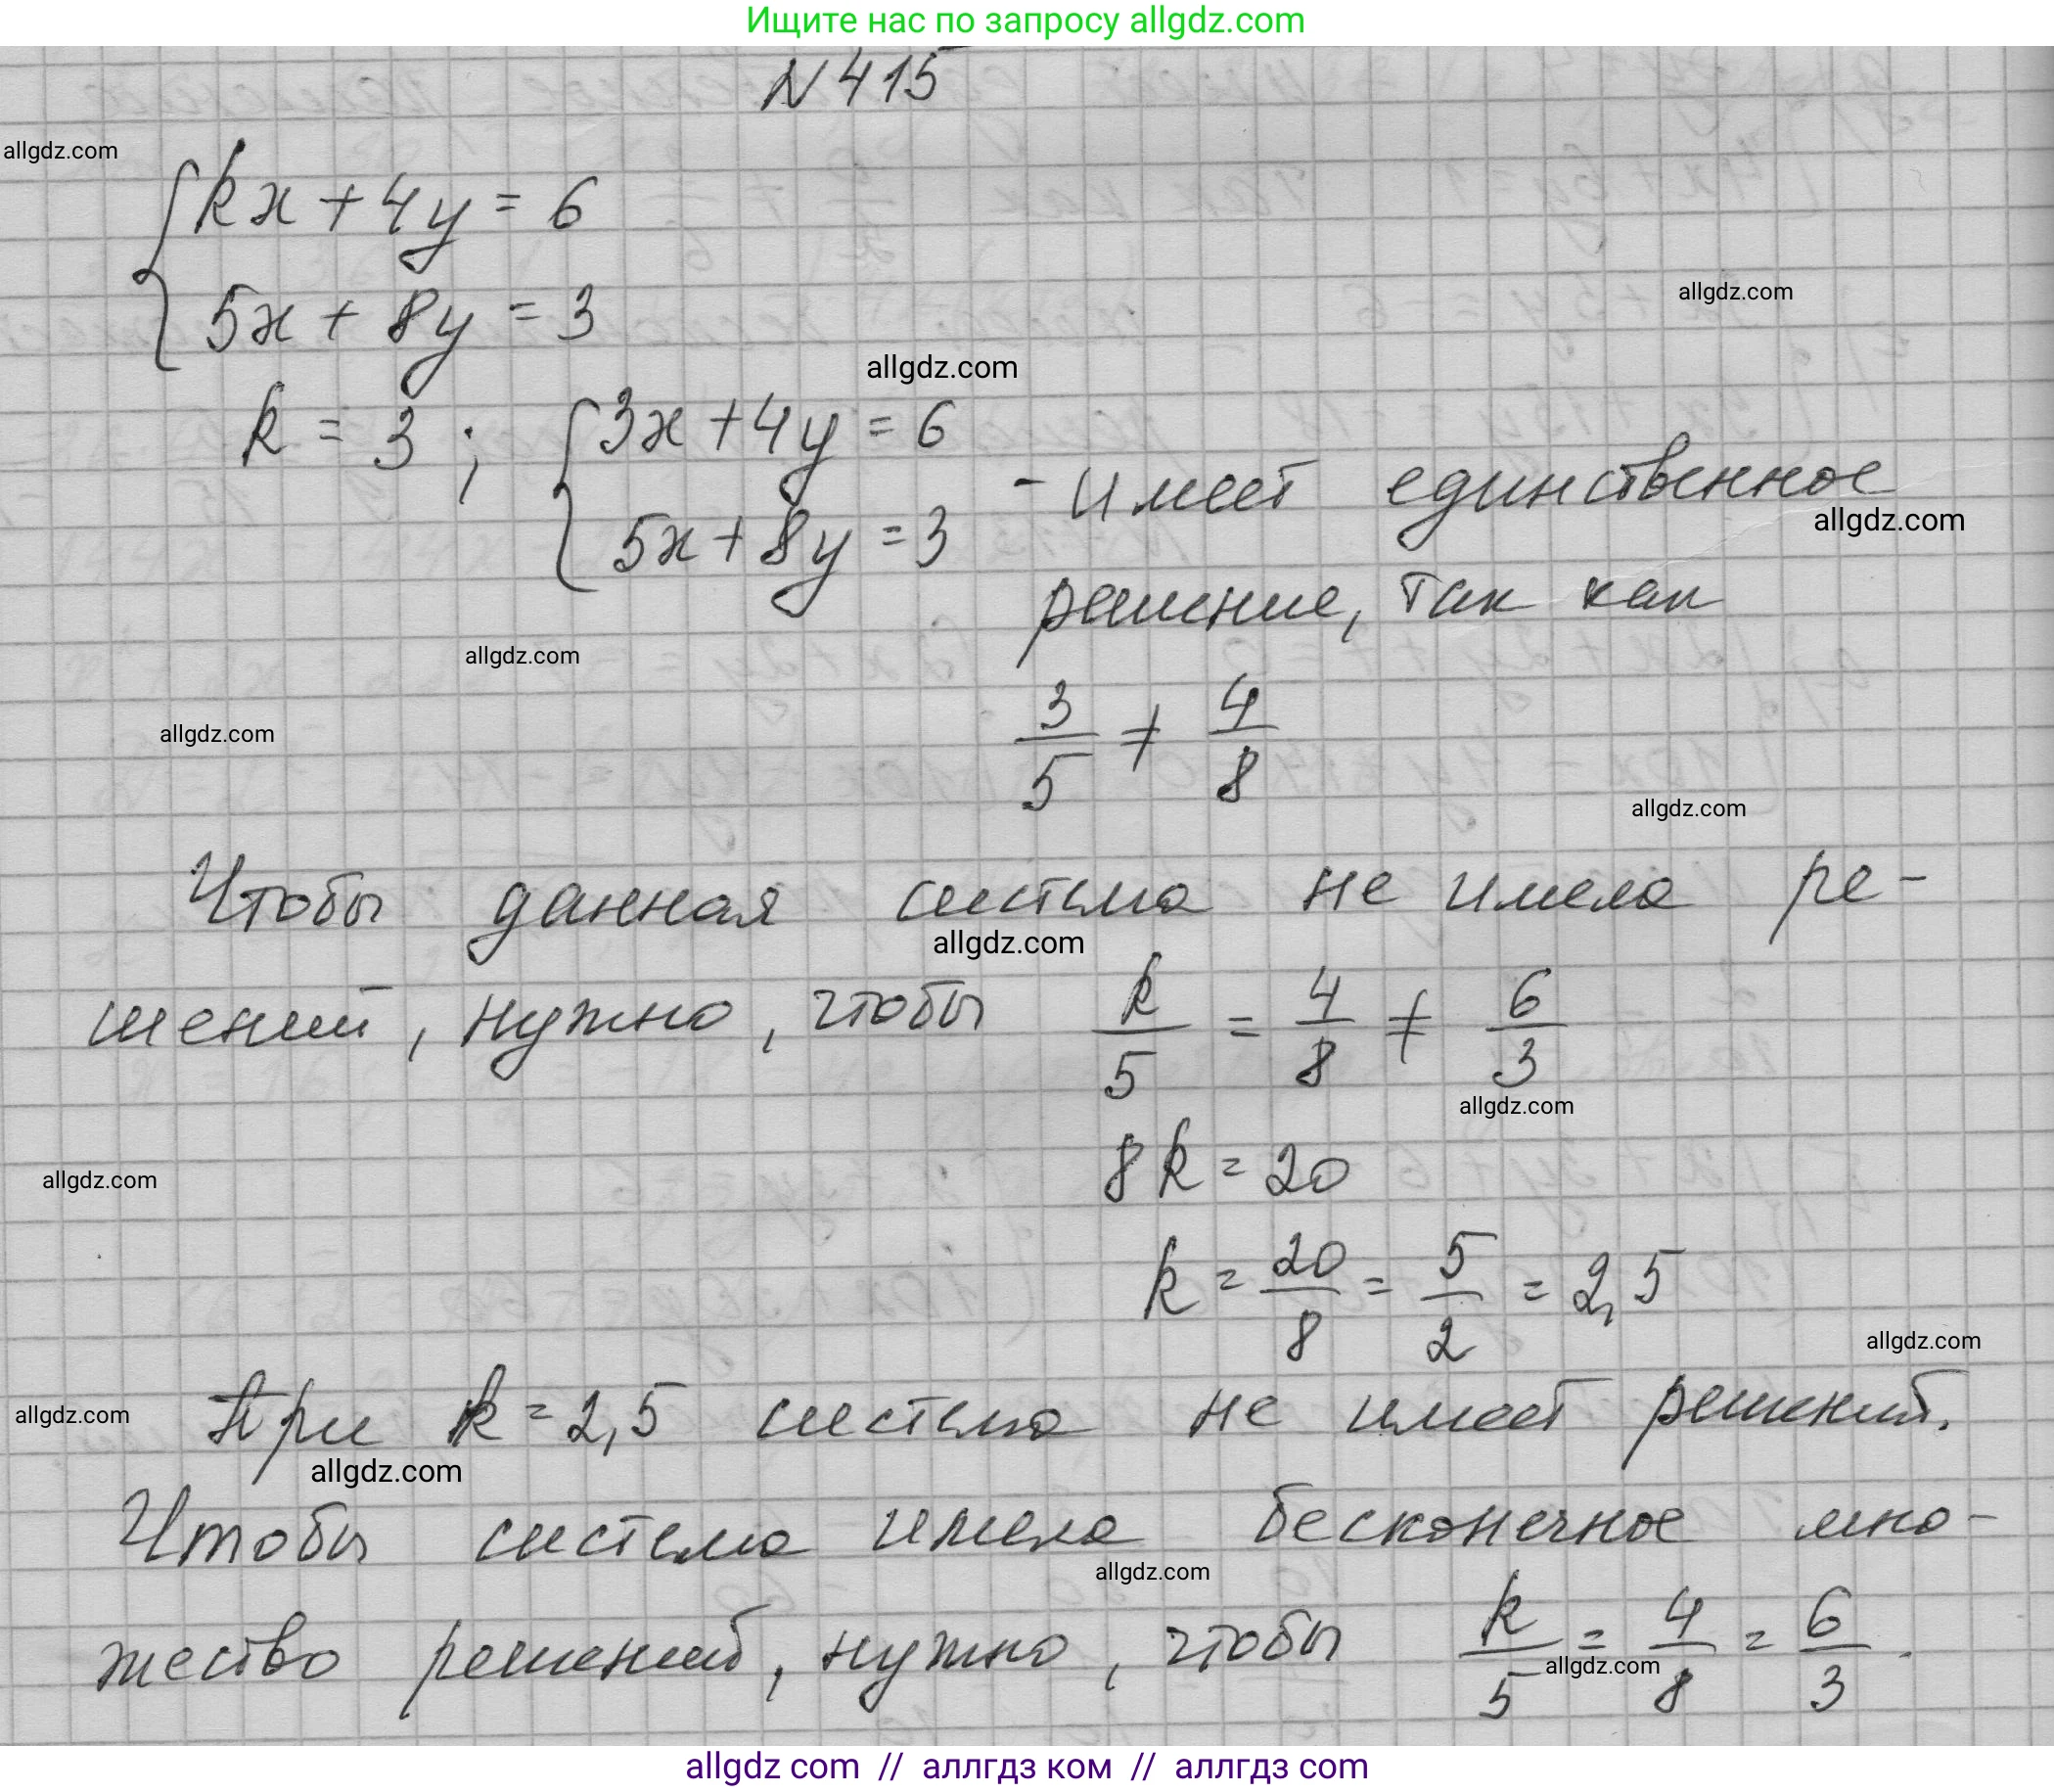 Ищите нас по запросу allgdz.com
N 415
allgdz.com
{kx + 4y = 6
5x + 8y = 3
allgdz.com
allgdz.com
k = 3 ; {3x + 4y = 6
5x + 8y = 3
- имеет единственное
allgdz.com
решение, так как
allgdz.com
3/5 ≠ 4/8
allgdz.com
allgdz.com
Чтобы данная система не имела ре-
allgdz.com
шений, нужно, чтобы k/5 = 4/8 ≠ 6/3
allgdz.com
8k = 20
allgdz.com
k = 20/8 = 5/2 = 2,5
allgdz.com
При k = 2,5 система не имеет решений.
allgdz.com
allgdz.com
Чтобы система имела бесконечное мно-
allgdz.com
жество решений, нужно, чтобы k/5 = 4/8 = 6/3.
allgdz.com
allgdz com // аллгдз ком // аллгдз com